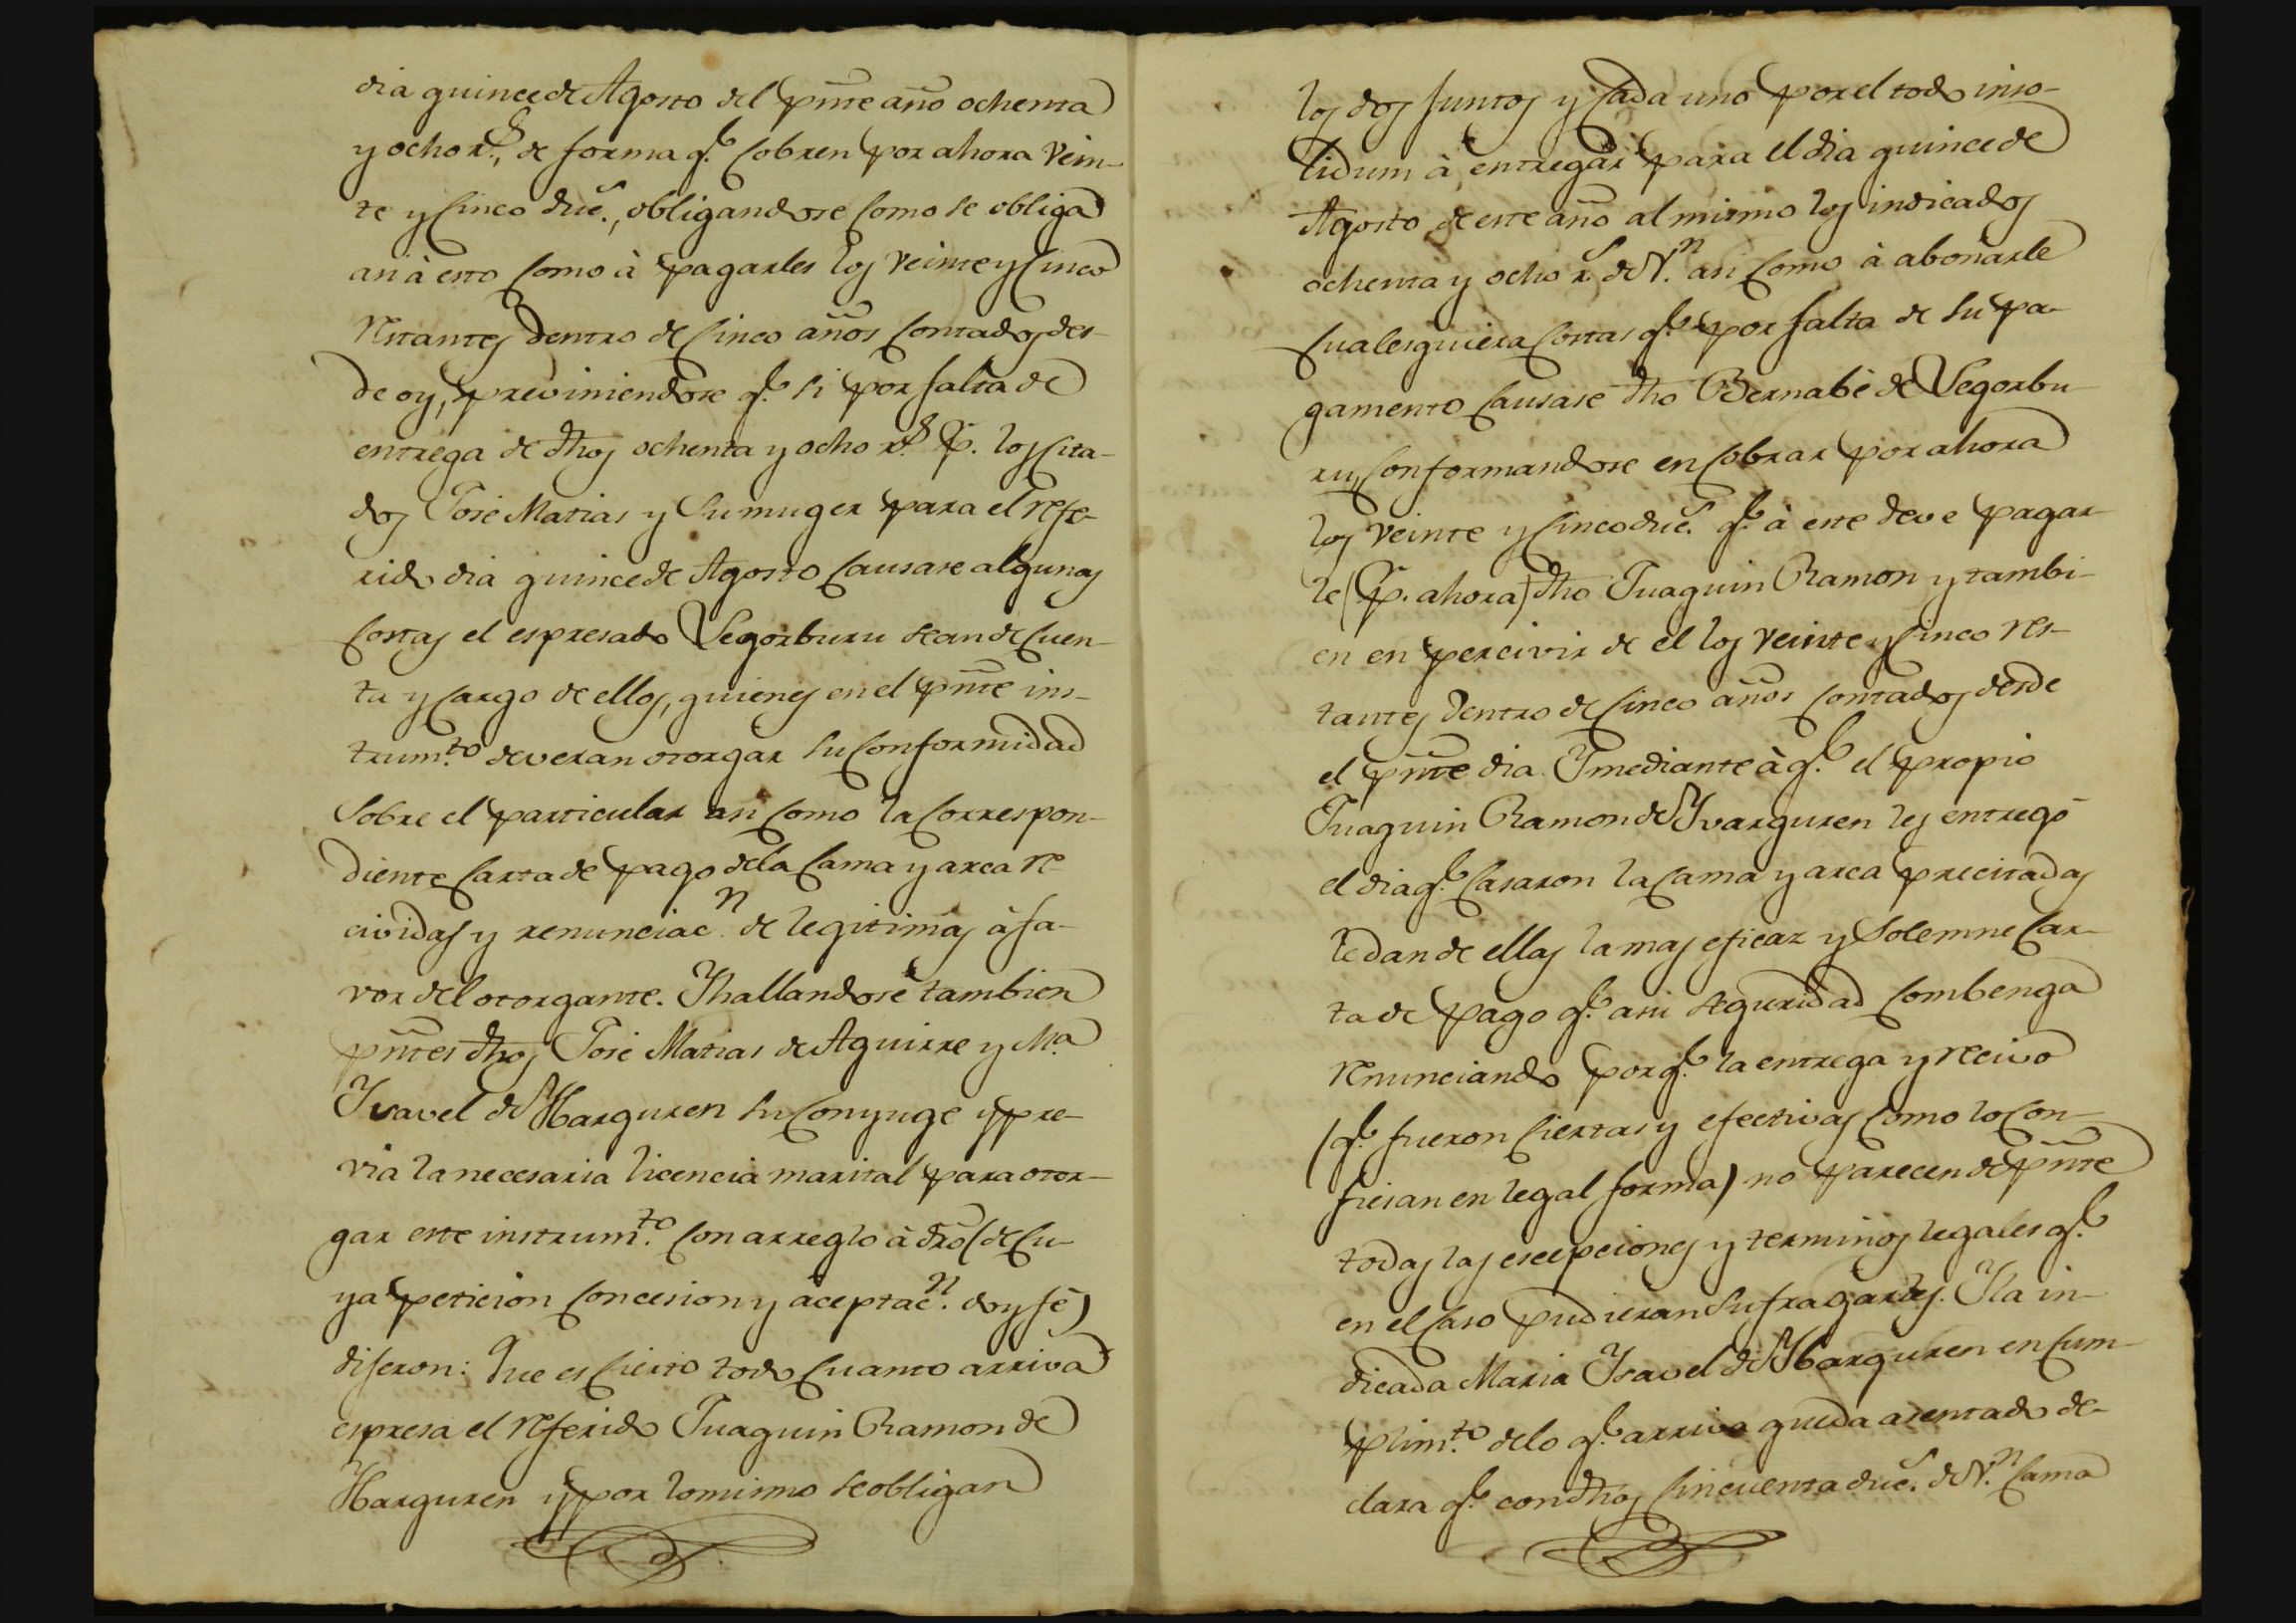 dia quince de Agosto del pnte año ochenta
y ocho rs., de forma q.e cobren por ahora vein-
te y cinco duc.s, obligandose como se obliga
asi à esto como à pagarles los veinte y cinco
restantes dentro de cinco años contados des-
de oy, previniendose q.e si por falta de
entrega de dhos ochenta y ocho rs. p.r los cita-
dos José Matias y su muger para el refe-
rido dia quince de Agosto causare algunas
costas el espresado Segorburu sean de cuen-
ta y cargo de ellos, quienes en el pnte ins-
trum.to deveran otorgar su conformidad
sobre el particular asi como la correspon-
diente carta de pago de la cama y arca re-
cividas y renunciac.n de legitimas à fa-
vor del otorgante. Y hallandose tambien
pntes dhos José Matias de Aguirre y M.a
Ysavel de Ybarguren su conyuge y pre-
via la necesaria licencia marital para otor-
gar este instrum.to con arreglo à dro (de cu-
ya peticion concesion y aceptac.n doy fé)
dijeron: Que es cierto todo cuanto arriva
espresa el referido Juaquin Ramon de
Ybarguren y por lo mismo se obligan
los dos juntos y cada uno por el todo inso-
lidum à entregar para el dia quince de
Agosto de este año al mismo los indicados
ochenta y ocho r.s de V.n asi como à abonarle
cualesquiera costas q.e por falta de su pa-
gamento causase dho Bernabé de Segorbu-
ru, conformandose en cobrar por ahora
los veinte y cinco duc.s q.e à este deve pagar-
le (p.r ahora) dho Juaquin Ramon y tambi-
en en percivir de el los veinte y cinco res-
tantes dentro de cinco años contados desde
el pnte dia. Y mediante à q.e el propio
Juaquin Ramon de Yvarguren les entregó
el dia q.e casaron la cama y arca precitadas
le dan de ellas la mas eficaz y solemne car-
ta de pago q.e a su seguridad combenga
renunciando por q.e la entrega y recivo
(q.e fueron ciertas y efectivas como lo con-
fiesan en legal forma) no parecen de pnte
todas las escepciones y terminos legales q.e
en el caso pudieran sufragarles. Y la in-
dicada Maria Ysavel de Ybarguren en cum-
plim.to de lo q.e arriva queda asentado de-
clara q.e con dhos cincuenta duc.s de V.n cama